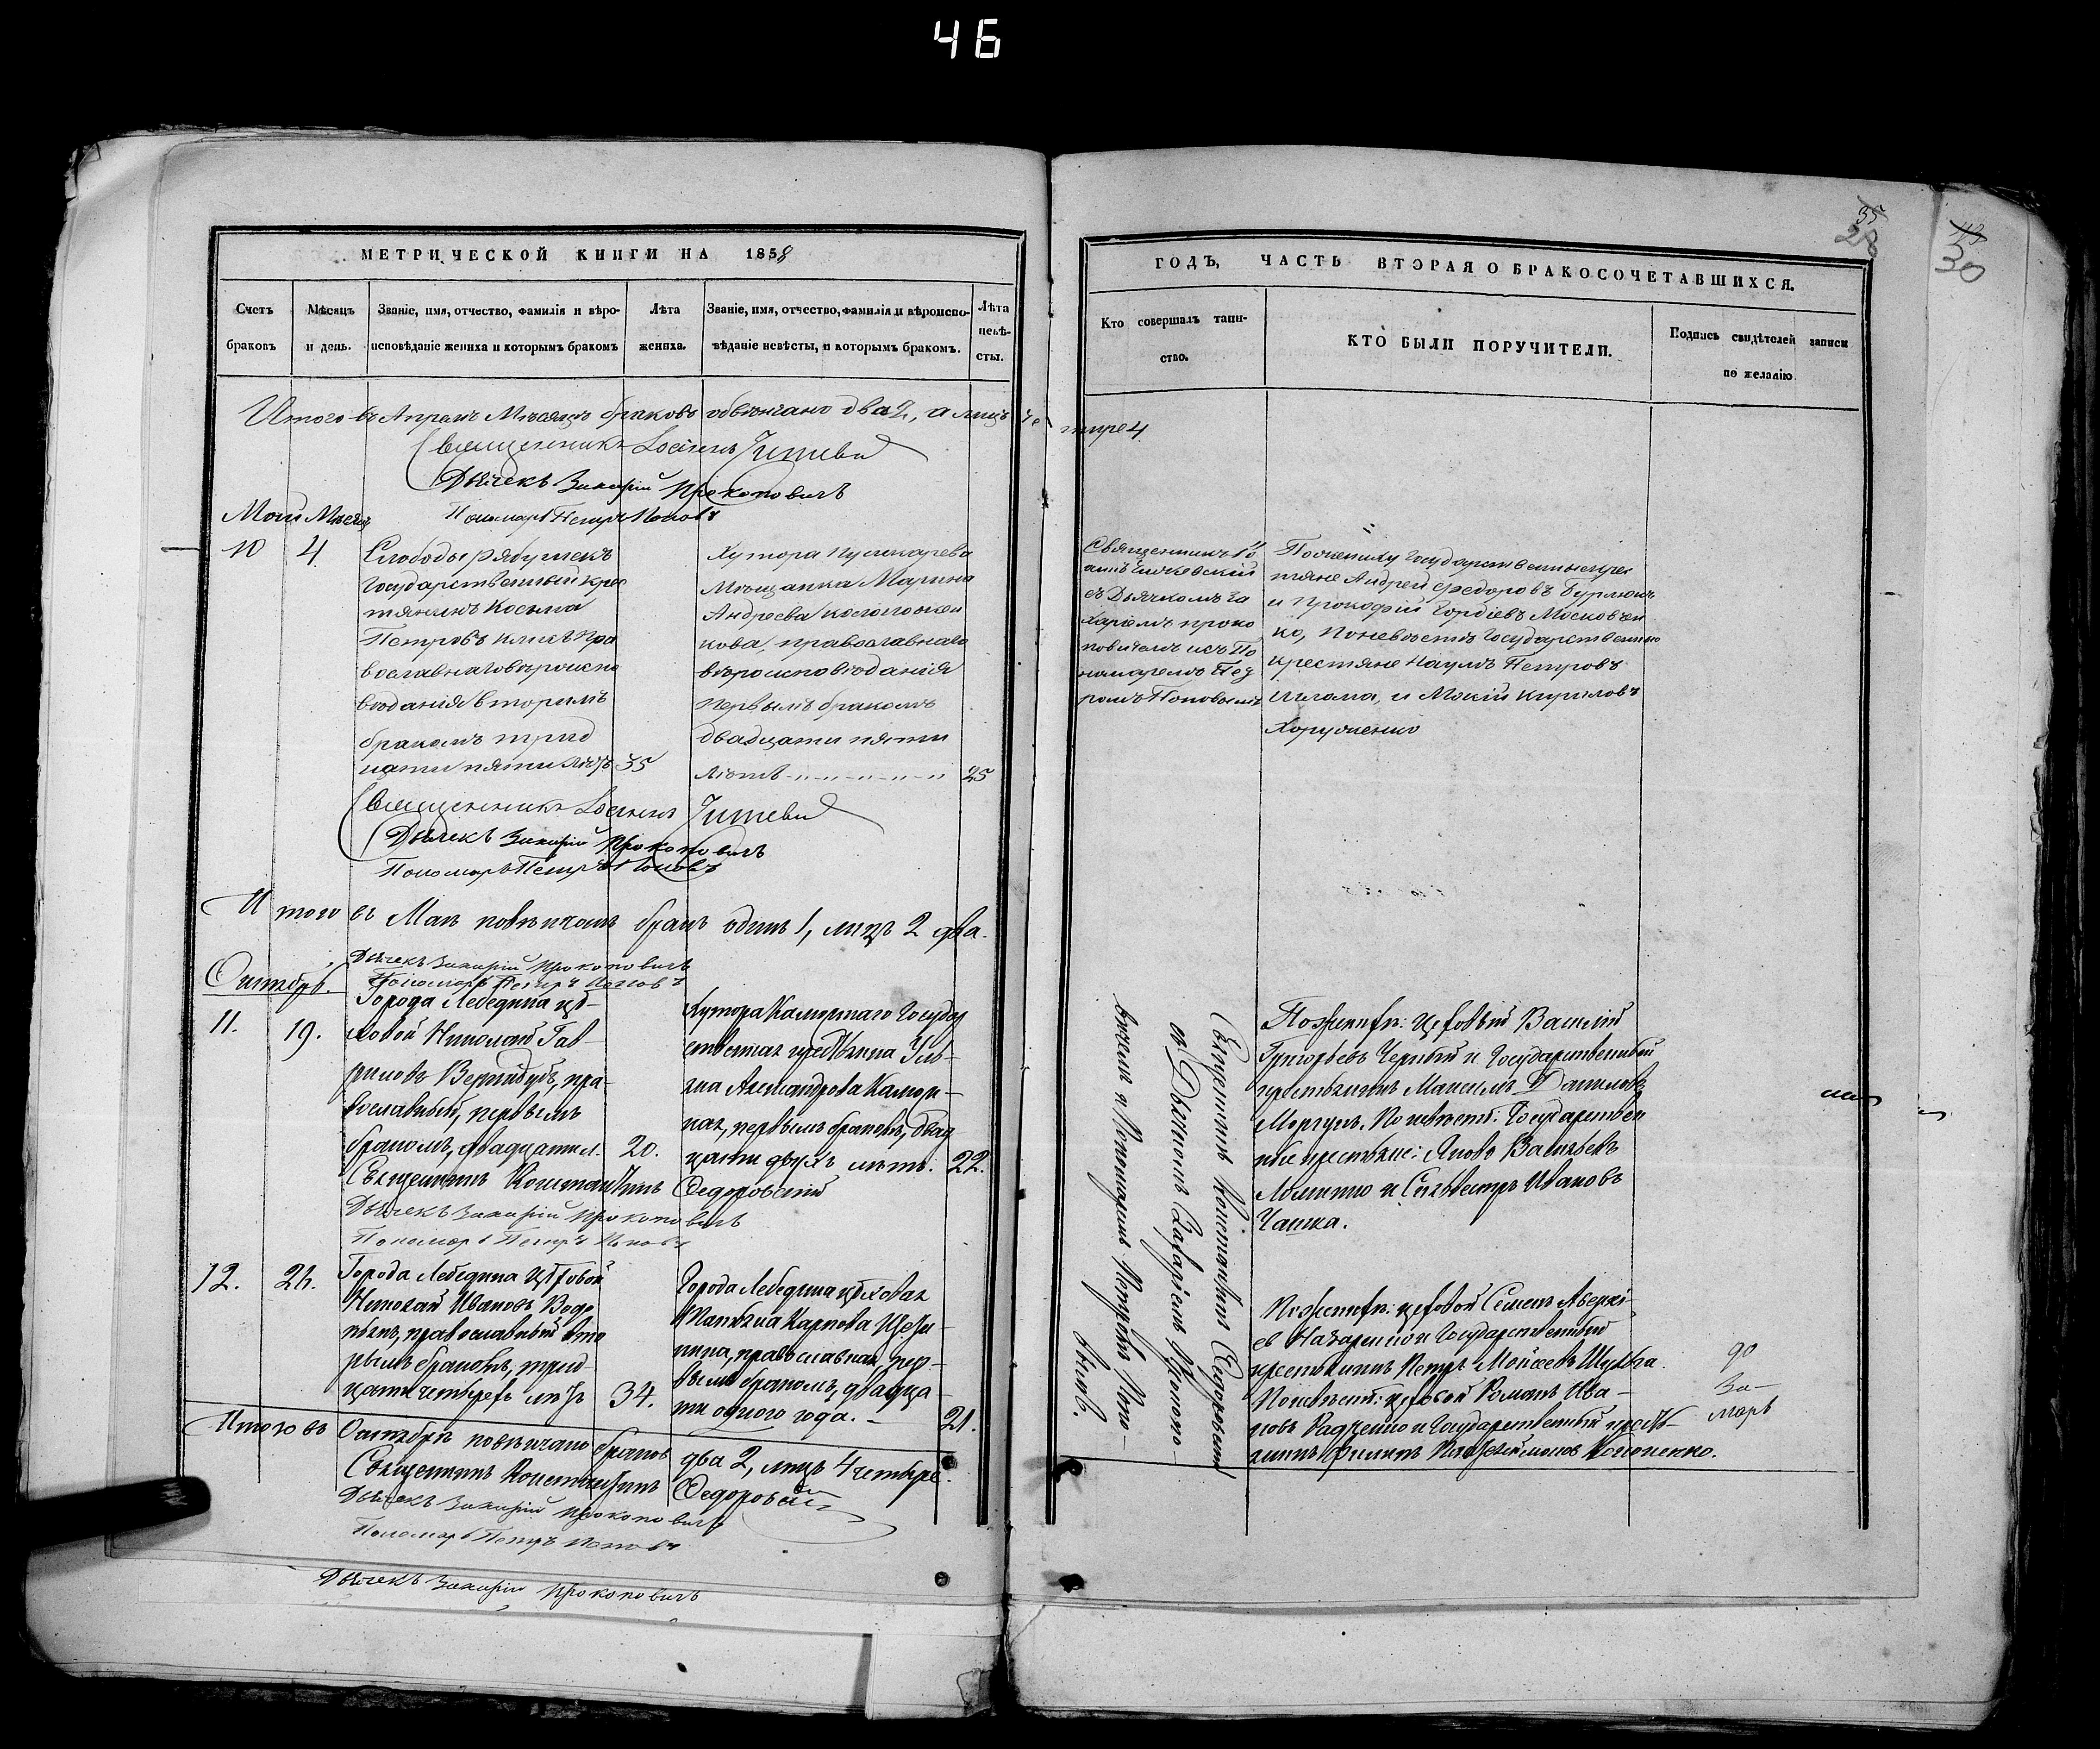 46
35
28
30
МЕТРИЧЕСКОЙ КНИГИ НА 1858
Счетъ браковъ
Мѣсяцъ и день.
Званіе, имя, отчество, фамилія и вѣро-
исповѣданіе жениха и которымъ бракомъ
Лѣта жениха.
Званіе, имя, отчество, фамилія и вѣроиспо-
вѣданіе невѣсты, и которымъ бракомъ.
Лѣта невѣ-
сты.
Итого въ Апрелѣ Мѣсяцѣ браковъ обвѣнчано два 2, а лицъ че
тыре 4
Священникъ Іоаннъ
Дьячекъ Захарій Прокоповичъ
Пономарь Петръ Поповъ
Май Месяцъ
10
4
Слободы Рябушекъ
Государственный крес
тянинъ Косьма
Петровъ Пра
вославнаго вѣроиспо
веданія вторымъ
бракомъ трид
цати пяти лѣтъ 35
Хутора Пушкарева
Мѣщанка Марина
Андреева
кова, православнаго
вѣроисповѣданія
первымъ бракомъ
двадцати пяти
лѣтъ 25
Священникъ Іоаннъ
Дьячекъ Захарій Прокоповичъ
Пономарь Петръ Поповъ
Итого въ Маѣ повѣнчанъ бракъ одинъ 1, лицъ 2 два.
Дьячекъ Захарій Прокоповичъ
Пономарь Петръ Поповъ
Октябрь.
11.
19.
Города Лебедина це-
ховой Николай Гав-
риловъ Вернидубъ, пра-
вославный, первымъ
бракомъ, двадцати л. 20.
Хутора Каморнаго Государ
ственная крестьянка Уль-
яна Александрова Камор-
ная, первымъ бракомъ, двад
цати двухъ лѣтъ. 22.
Священникъ Константинъ Федоровскій
Дьячекъ Захарій Прокоповичъ
Пономарь Петръ Поповъ
12.
Города Лебедина Цеховой
Николай Ивановъ
православный вто
рымъ бракомъ, трид-
цати четырехъ лѣтъ 34.
Города Лебедина цеховая
Карпова
православная, пер-
вымъ бракомъ, двадца-
ти одного года. - 21.
Итого въ Октябрѣ повѣнчано браковъ два 2, лицъ 4 четыре.
Священникъ Константинъ Федоровскій
Дьячекъ Захарій Прокоповичъ
Пономарь Петръ Поповъ
Дьячекъ Захарій Прокоповичъ
ГОДЪ, ЧАСТЬ ВТОРАЯ О БРАКОСОЧЕТАВШИХСЯ.
Кто совершалъ таин-
ство.
КТО БЫЛИ ПОРУЧИТЕЛИ.
Подпись свидѣтелей записи
по желанію
Священникъ Іо
аннъ
съ Дьячкомъ За
харіемъ Проко
повичемъ и съ По
номаремъ Пет
ромъ Поповымъ
По жениху Государственные крес
тяне Андрей Федоровъ
и Прокофій Гордіевъ Московчен
ко, По невѣсте Государственные
крестяне Наумъ Петровъ
и Мокій Кириловъ
Священникъ Константинъ Федоровскій
съ Дьячкомъ Захаріемъ Прокопо-
вичемъ и Пономаремъ Петромъ Попо-
вымъ.
По жених: цеховый Василій
Григорьевъ Черный и Государственный
крестьянинъ Максимъ Даниловъ
Моргунъ. По невѣст: Государствен
ные крестьяне: Яковъ Васильевъ
и Сильвестръ Ивановъ
Чашка.
По жених: цеховой Семенъ Аверкі-
евъ Назаренко и Государственный
крестьянинъ Петръ Мойсеевъ Шульга.
По невѣст: цеховой Романъ Ива-
новъ Радченко и Государственный кресть-
янинъ Филипъ
марь